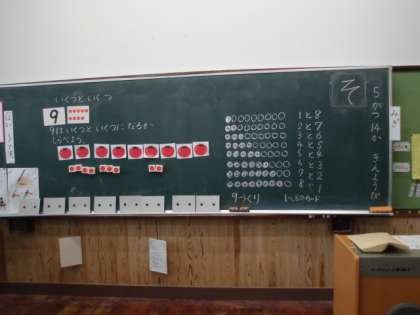 いくつと いくつ
9
9は いくつと いくつに なるか
しらべよう。
1と8
2と7
3と6
4と5
5と4
6と3
7と2
8と1
9づくり
そ
5がつ14か きんようび
みぎ